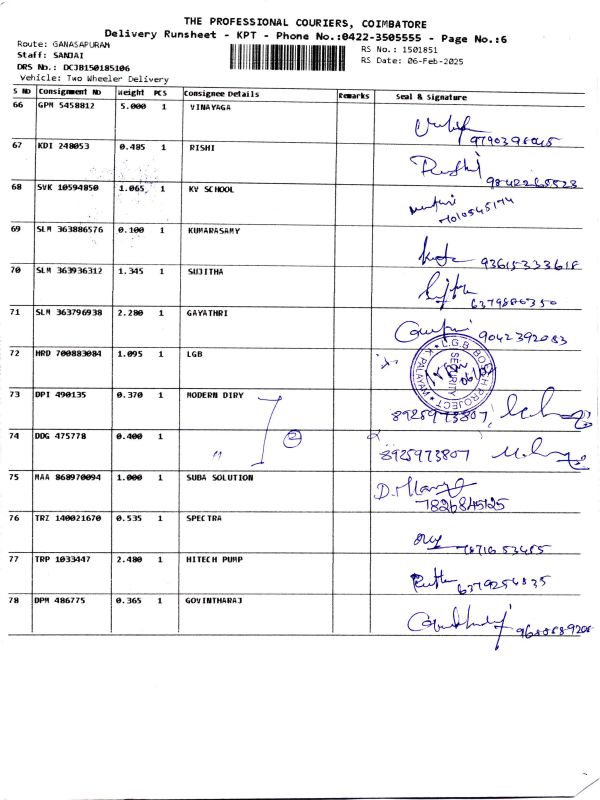 THE PROFESSIONAL COURIERS, COIMBATORE
Delivery Runsheet - KPT - Phone No.:0422-3505555 - Page No.:6
Route: GANASAPURAM
Staff: SANJAI
DRS No.: DCJB150185106
Vehicle: Two Wheeler Delivery
RS No.: 1501851
RS Date: 06-Feb-2025
S No Consignment No Weight PCS Consignee Details Remarks Seal & Signature
66 GPM 5458812 5.000 1 VINAYAGA
9790398045
67 KDI 248053 0.485 1 RISHI
Rishi
9842265523
68 SVK 10594850 1.065 1 KV SCHOOL
7010545174
69 SLM 363886576 0.100 1 KUMARASAMY
93615333618
70 SLM 363936312 1.345 1 SUJITHA
6379886350
71 SLM 363796938 2.280 1 GAYATHRI
9042392083
72 HRD 700883084 1.095 1 LGB
L.G.B. BOSCH PROJECT
SECURITY
K. PALAYAM
73 DPI 490135 0.370 1 MODERN DIRY
2
8925973807
74 DDG 475778 0.400 1 "
8925973807
75 MAA 868970094 1.000 1 SUBA SOLUTION
7826845125
76 TRZ 140021670 0.535 1 SPECTRA
77 TRP 1033447 2.480 1 HITECH PUMP
6379254835
78 DPM 486775 0.365 1 GOVINTHARAJ